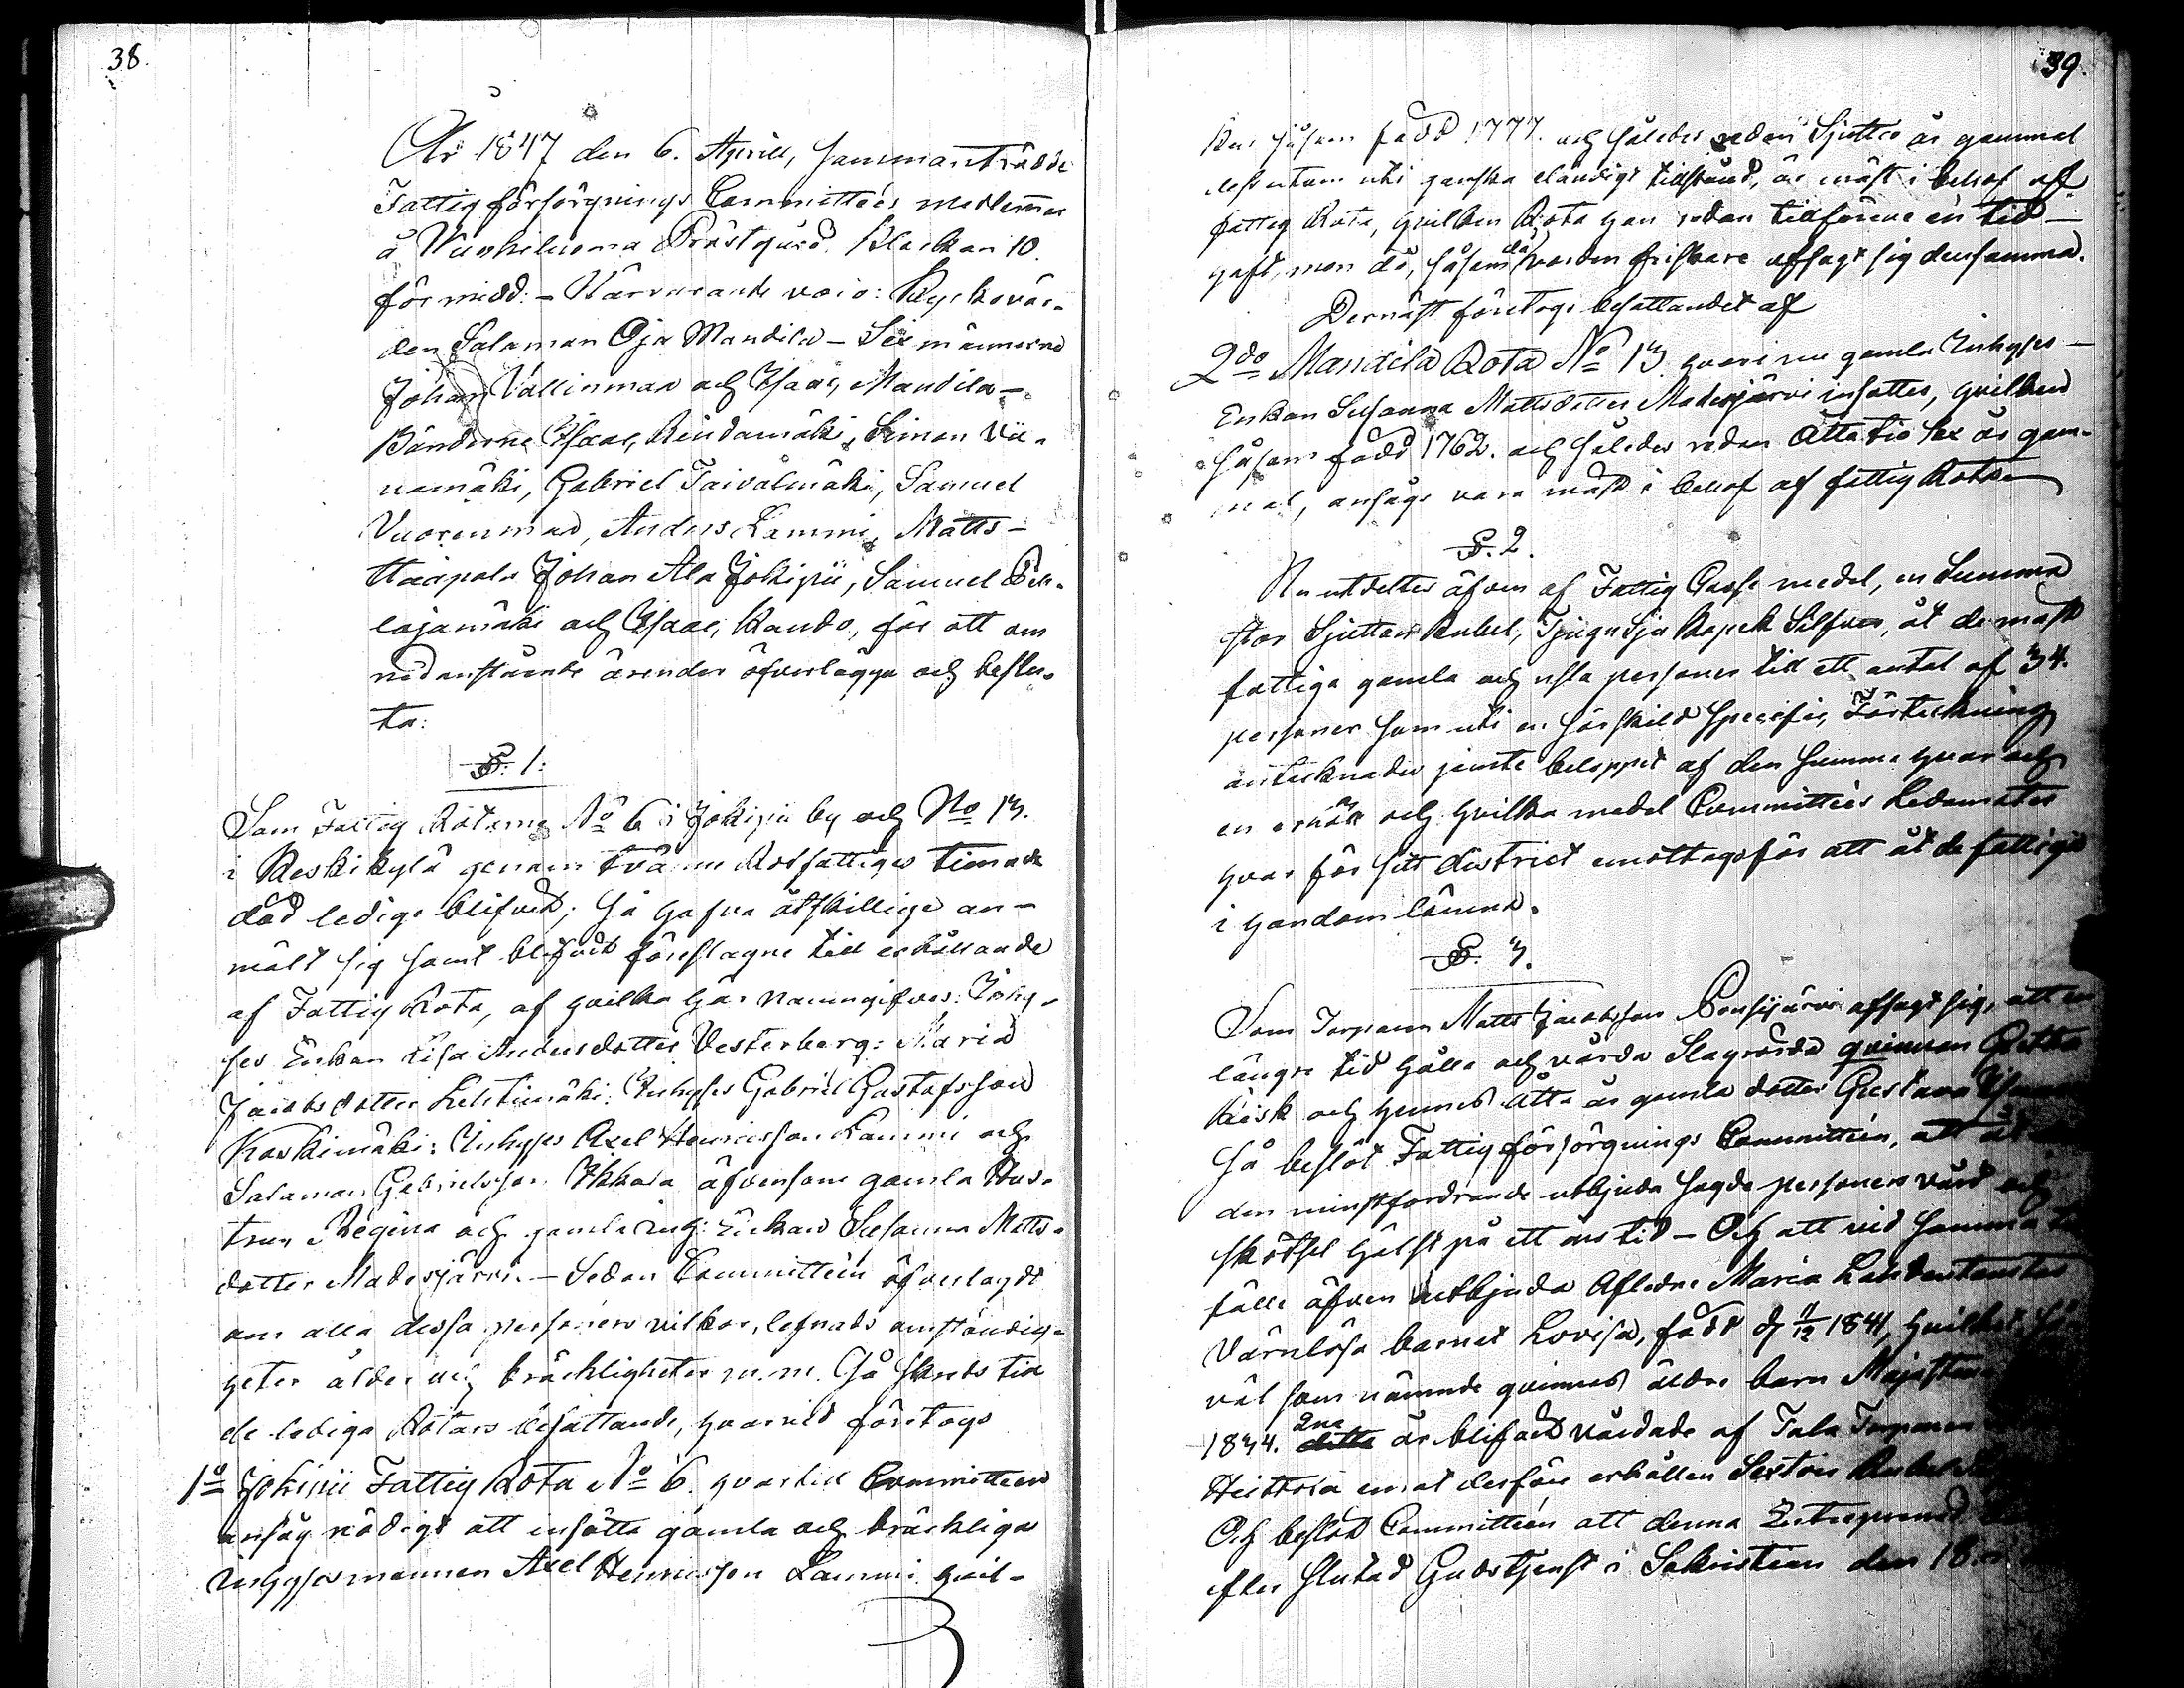 38.
År 1847 den 6. Aprill, sammanträdde
Fattigförsörgnings Committéens medlemmar
å Vuoskiluoma Prästgård Klockan 10.
förmidd: - Närvarande voro: Kyrkovär-
den Salamon Oja Mandila - Sexmännerne
Johan Vallinmaa och Isaac Mandila -
Bönderne Isaac Rindamäki, Simon Vii-
namäki, Gabriel Taivalmäki, Samuel
Vuorenmaa, Anders Lammi, Matts -
Haapala Johan Ala Jokipii, Samuel Pel-
lajamäki och Isaac Kando, för att om
nedanstående ärender öfverlägga och beslu-
ta:
§. 1:
Som Fattig Rotarne No 6 i Jokipii by och No 13.
i Keskikylä genom tvänne Rotfattiges timade
död lediga blifvit; så hafva åtskillige an-
mält sig samt blifvit föreslagne till erhållande
af Fattig Rota, af hvilka här namngifves: Inhy-
ses Enkan Lisa Andersdotter Vesterberg: Maria
Jacobsdotter Lehtimäki: Inhyses Gabriel Gustafsson
Koskimäki: Inhyses Axel Henricsson Lammi och
Salamon Gabrielsson Ikkala äfvensom gamla Hus-
trun Regina och gamla inh: Enkan Susanna Matts-
dotter Madesjärvi. - Sedan Committéen öfverlagdt
om alla dessa personers vilkor, lefnads omständig-
heter ålder och bräckligheter m.m. Så skreds till
de lediga Rotars besättande, hvarvid företogs
1o Jokipii Fattig Rota No 6. hvartill Committeen
ansåg nödigt att insätta gamla och bräckliga
Inhysesmannen Axel Henricsson Lammi hvil-
39.
ken såsom född 1777. och således redan Sjuttio år gammal
dessutom uti ganska eländigt tillstånd, är mäst i behof af
fattig Rota, hvilken Rota han redan tillförene en tid -
haft, men då, såsom då vorden friskare afsagt sig densamma.
Dernäst företogs besättandet af
2do Mandila Rota No 13. hvari nu gamla Inhyses -
Enkan Susanna Mattsdotter Madesjärvi insattes, hvilken
såsom född 1762. och således redan Åttatio sex år gam-
mal, ansågs vara mäst i behof af fattig Rotan
§. 2.
Nu utdeltes äfven af Fattig Casse medel, en Summa
stor Sjutton Rubel, Tjugu Sju Kopek Silfver, åt de mäst
fattiga gamla och usla personer till ett antal af 34.
personer som uti en särskild specifik Förteckning
antecknades jemte beloppet af den summa hvar och
en erhöll och hvilka medel Committéens Ledamöter
hvar för sitt district emottogs för att åt de fattiga
i handom lämna.
§. 3.
Som Torparen Matts Jacobsson afsagt sig, att en
längre tid hålla och vårda Slagrörda qvinnan Greta
Kiisk och hennes åtta år gamla dotter Gustava
Så beslöt Fattigförsörgnings Committéen, att åt
den minstfordrande utbjuda sagde personers vård och
skötsel hälst på ett års tid - Och att vid samma
fälle äfven utbjuda Aflidne Maria
Värnlösa barnet Lovisa, född d 11/12 1841, hvilket så
väl som nämnde qvinnas äldre barn
1834. 2ne är blifvit vårdade af Torparen
Heittola emot derföre erhållen Sexton Rubel
Och beslöt Committéen att denna Entreprenad
efter slutad Gudstjenst i Sakristian den 18.